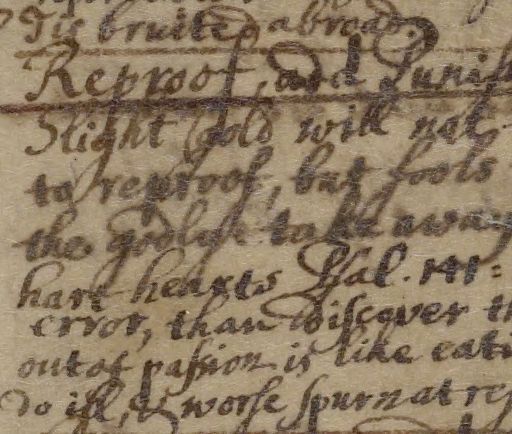 Tis bruited abroad.
Reproof, and Punish
Slight Gold will not
to reproof, but fools
the godlye take away
hart hearts Psal. 141=
error, than discover th
out of passion is like eati
do ill, & worse spurn at rep